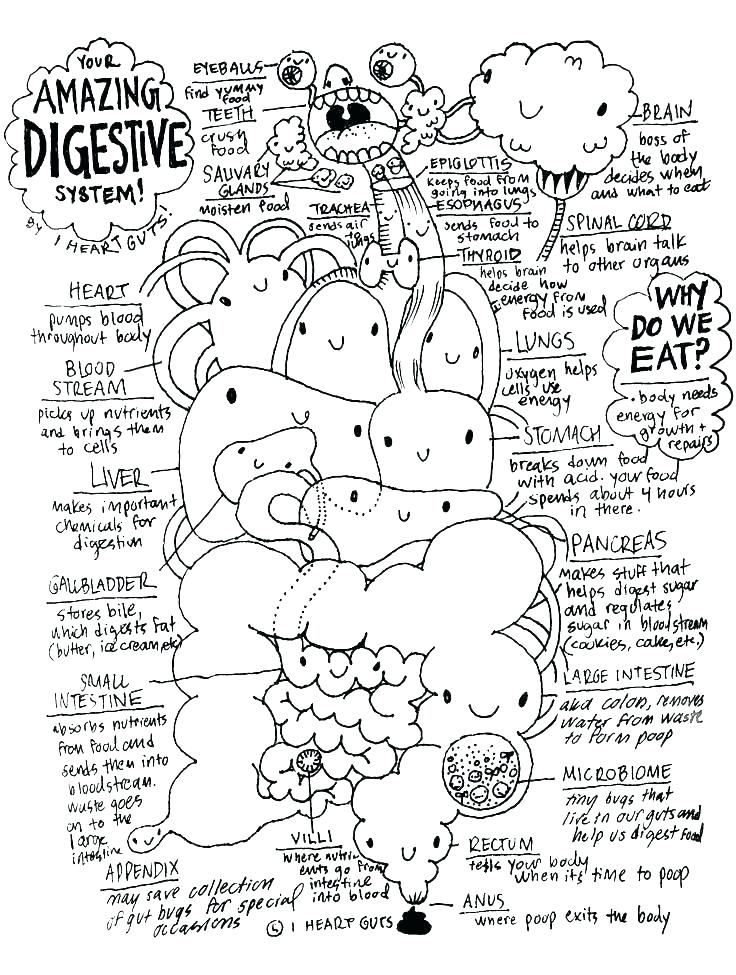 YOUR
AMAZING
DIGESTIVE
SYSTEM!
By I HEART GUTS!
EYEBALLS
find yummy
food
TEETH
crush
food
SALIVARY
GLANDS
moisten food
TRACHEA
sends air
to
lungs
EPIGLOTTIS
keeps food from
going into lungs
ESOPHAGUS
sends food to
stomach
THYROID
helps brain
decide how
energy from
food is used
BRAIN
boss of
the body
decides when
and what to eat
SPINAL CORD
helps brain talk
to other organs
HEART
pumps blood
throughout body
BLOOD
STREAM
picks up nutrients
and brings them
to cells
LIVER
makes important
chemicals for
digestion
GALLBLADDER
stores bile,
which digests fat
(butter, ice cream, etc)
SMALL
INTESTINE
absorbs nutrients
from food and
sends them into
bloodstream.
waste goes
on to the
large
intestine
APPENDIX
may save collection
of gut bugs for special
occasions
LUNGS
oxygen helps
cells use
energy
WHY
DO WE
EAT?
• body needs
energy for
growth +
repairs
STOMACH
breaks down food
with acid. your food
spends about 4 hours
in there.
PANCREAS
makes stuff that
helps digest sugar
and regulates
sugar in bloodstream
(cookies, cake, etc.)
LARGE INTESTINE
aka colon, removes
water from waste
to form poop
MICROBIOME
tiny bugs that
live in our guts and
help us digest food
VILLI
where nutrients
go from
intestine
into blood
RECTUM
tells your body
when its time to poop
ANUS
where poop exits the body
I HEART GUTS